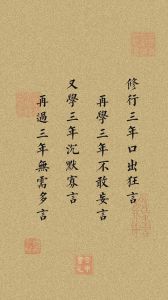 修行三年口出狂言
再學三年不敢妄言
又學三年沉默寡言
再過三年無需多言